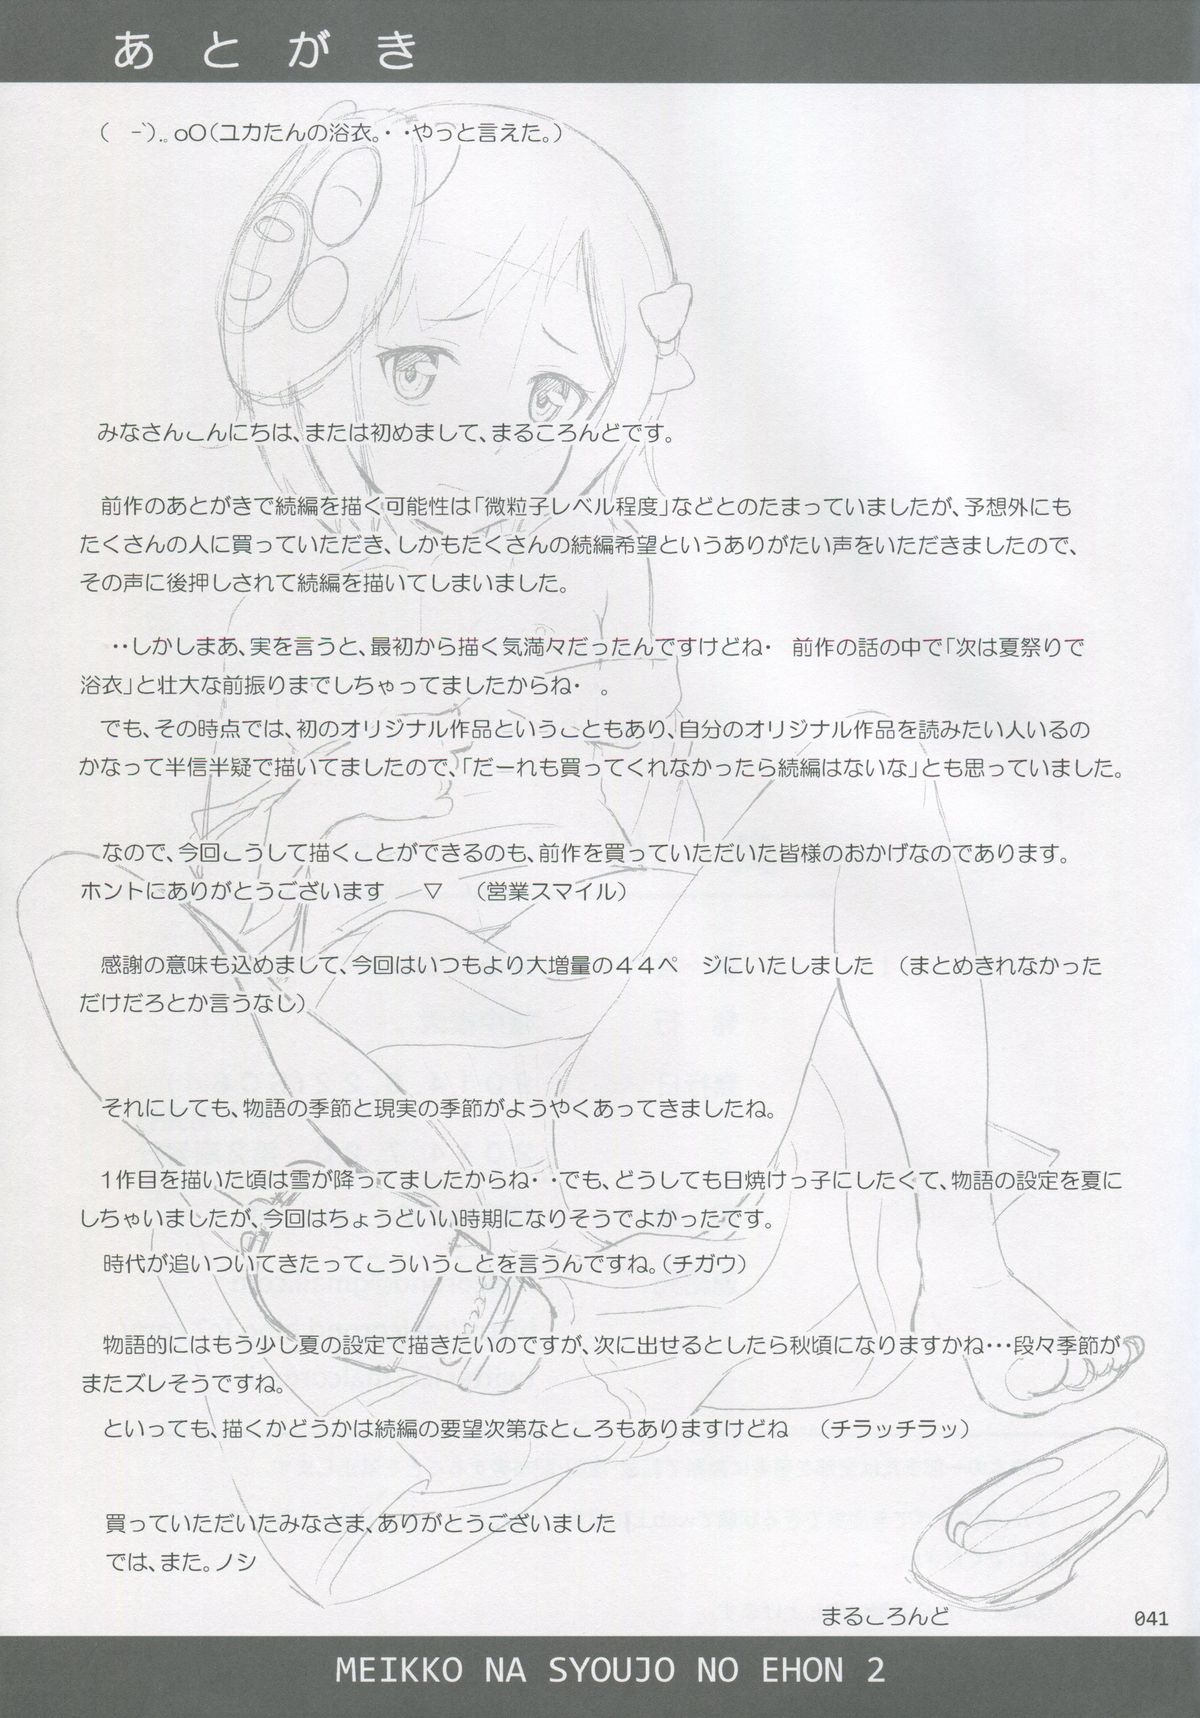 あとがき
(　-`).。oO(ユカたんの浴衣。・・やっと言えた。)
みなさんこんにちは、または初めまして、まるころんどです。
前作のあとがきで続編を描く可能性は「微粒子レベル程度」などとのたまっていましたが、予想外にも
たくさんの人に買っていただき、しかもたくさんの続編希望というありがたい声をいただきましたので、
その声に後押しされて続編を描いてしまいました。
・・しかしまあ、実を言うと、最初から描く気満々だったんですけどね・　前作の話の中で「次は夏祭りで
浴衣」と壮大な前振りまでしちゃってましたからね・　。
でも、その時点では、初のオリジナル作品ということもあり、自分のオリジナル作品を読みたい人いるの
かなって半信半疑で描いてましたので、「だーれも買ってくれなかったら続編はないな」とも思っていました。
なので、今回こうして描くことができるのも、前作を買っていただいた皆様のおかげなのであります。
ホントにありがとうございます　▽　（営業スマイル）
感謝の意味も込めまして、今回はいつもより大増量の４４ペ　ジにいたしました　（まとめきれなかった
だけだろとか言うなし）
それにしても、物語の季節と現実の季節がようやくあってきましたね。
1作目を描いた頃は雪が降ってましたからね・・でも、どうしても日焼けっ子にしたくて、物語の設定を夏に
しちゃいましたが、今回はちょうどいい時期になりそうでよかったです。
時代が追いついてきたってこういうことを言うんですね。（チガウ）
物語的にはもう少し夏の設定で描きたいのですが、次に出せるとしたら秋頃になりますかね・・・段々季節が
またズレそうですね。
といっても、描くかどうかは続編の要望次第なところもありますけどね　（チラッチラッ）
買っていただいたみなさま、ありがとうございました
では、また。ノシ
まるころんど
041
MEIKKO NA SYOUJO NO EHON 2